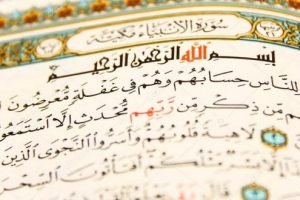 سُورَةُ الْأَنْبِيَاءِ مَكِّيَّة
بِسْمِ اللَّهِ الرَّحْمَٰنِ الرَّحِيمِ
لِلنَّاسِ حِسَابُهُمْ وَهُمْ فِي غَفْلَةٍ مُعْرِضُونَ
مِنْ ذِكْرٍ مِنْ رَبِّهِمْ مُحْدَثٍ إِلَّا اسْتَمَعُو
لَاهِيَةً قُلُوبُهُمْ وَأَسَرُّوا النَّجْوَى الَّذِينَ
مِثْلُكُمْ أَفَتَأْتُونَ السِّحْرَ